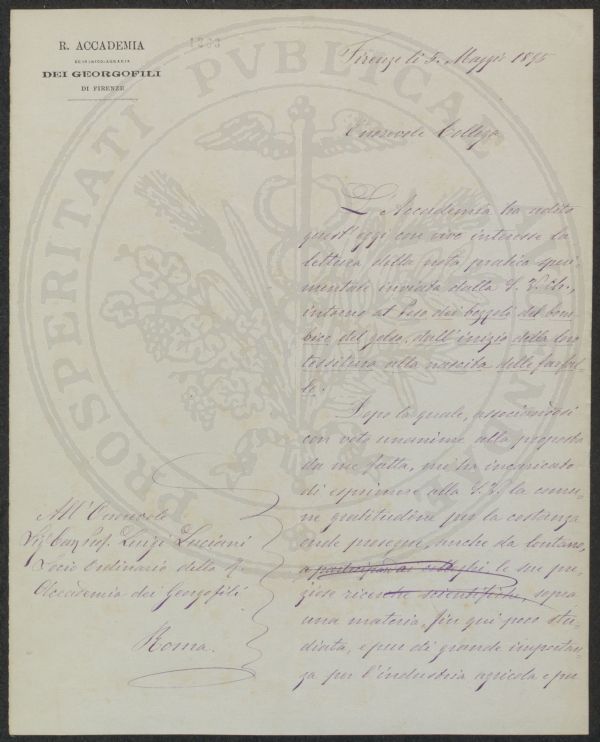 R. ACCADEMIA
ECONOMICO-AGRARIA
DEI GEORGOFILI
DI FIRENZE
PROSPERITATI PUBLICAE
Firenze li 5. Maggio 1895
Onorevole Collega
L'Accademia ha udito
quest'oggi con vivo interesse la
lettura della nota pratica speri-
mentale inviata dalla S. V. Ill.,
intorno al Peso dei bozzoli del bom-
bice del gelso, dall'inizio della loro
tessitura alla nascita delle farfal-
le.
Dopo la quale, associandosi
con voto unanime alla proposta
da me fatta, mi ha incaricato
di esprimere alla S. V. la comu-
ne gratitudine per la costanza
onde prosegue, anche da lontano,
a partecipar ai colleghi le sue pre-
ziose ricerche scientifiche, sopra
una materia, fin qui poco stu-
diata, e pur di grande importan-
za per l'industria agricola e per
All'Onorevole
Prof. Luigi Luciani
Socio Ordinario della R.
Accademia dei Georgofili
Roma.